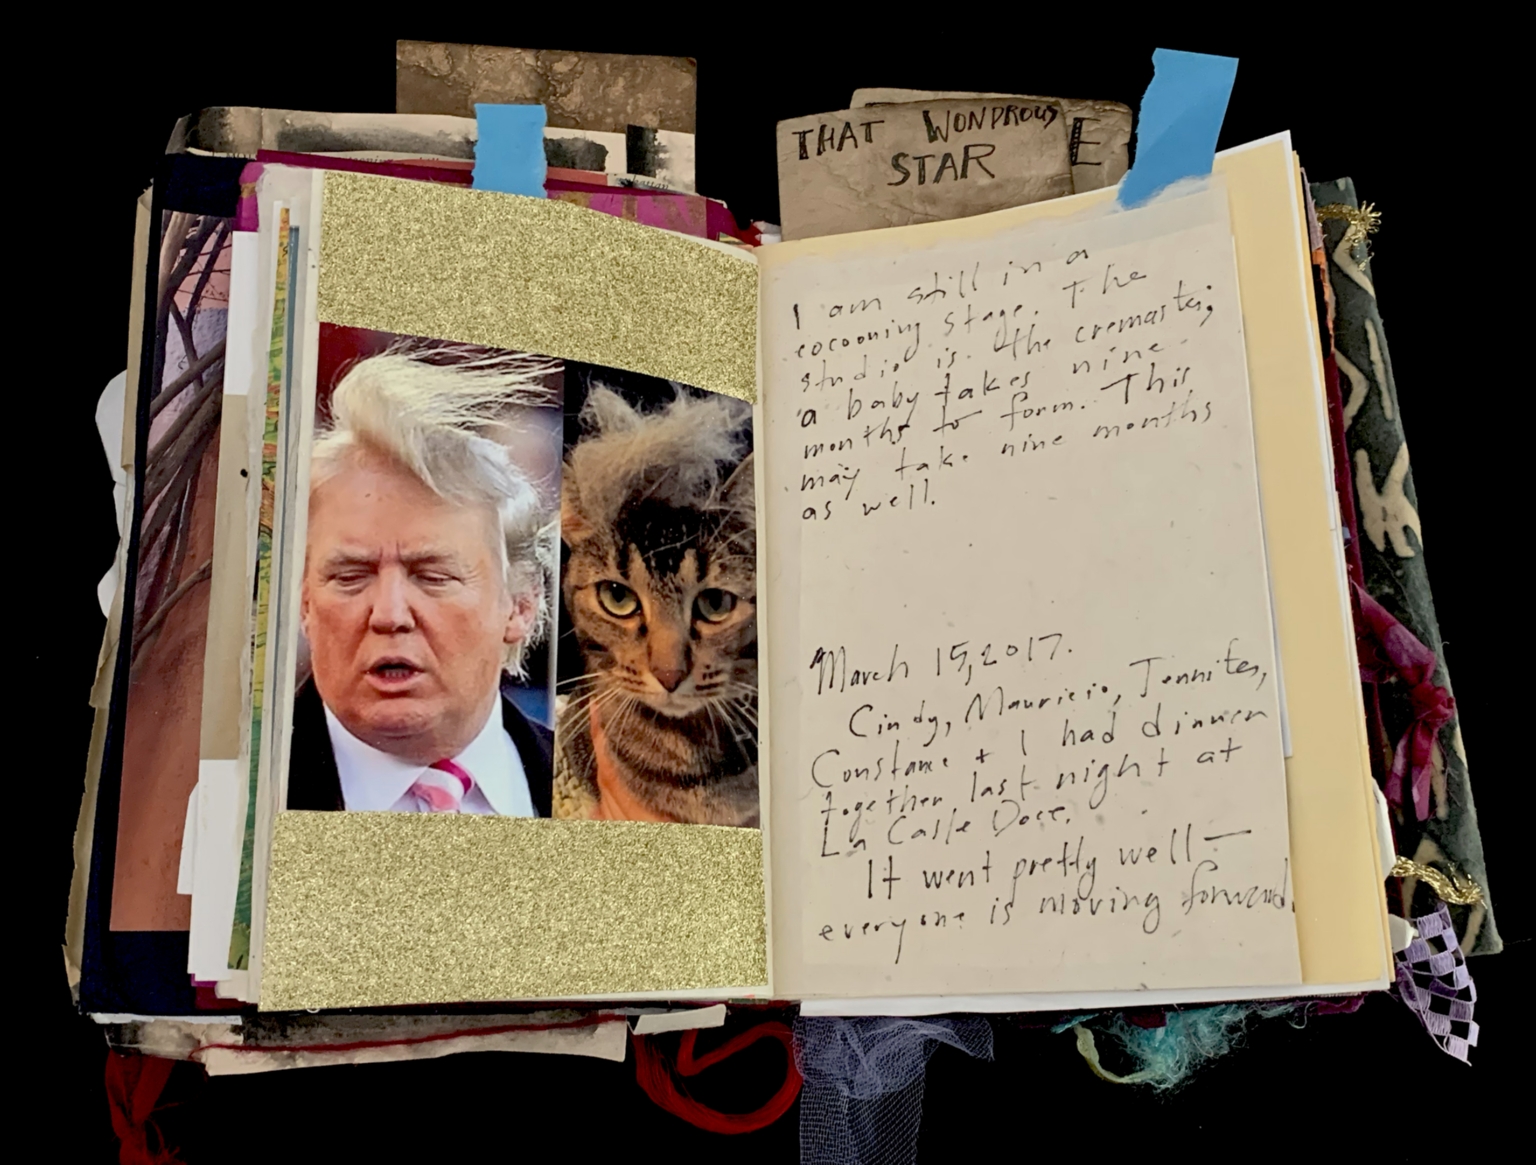 THAT WONDROUS
STAR
E
I am still in a
cocooning stage. The
studio is the cremaster;
a baby takes nine
months to form. This
may take nine months
as well.
March 15, 2017.
Cindy, Mauricio, Jennifer,
Constance + I had dinner
together last night at
La Casse Dore.
It went pretty well—
everyone is moving forward.